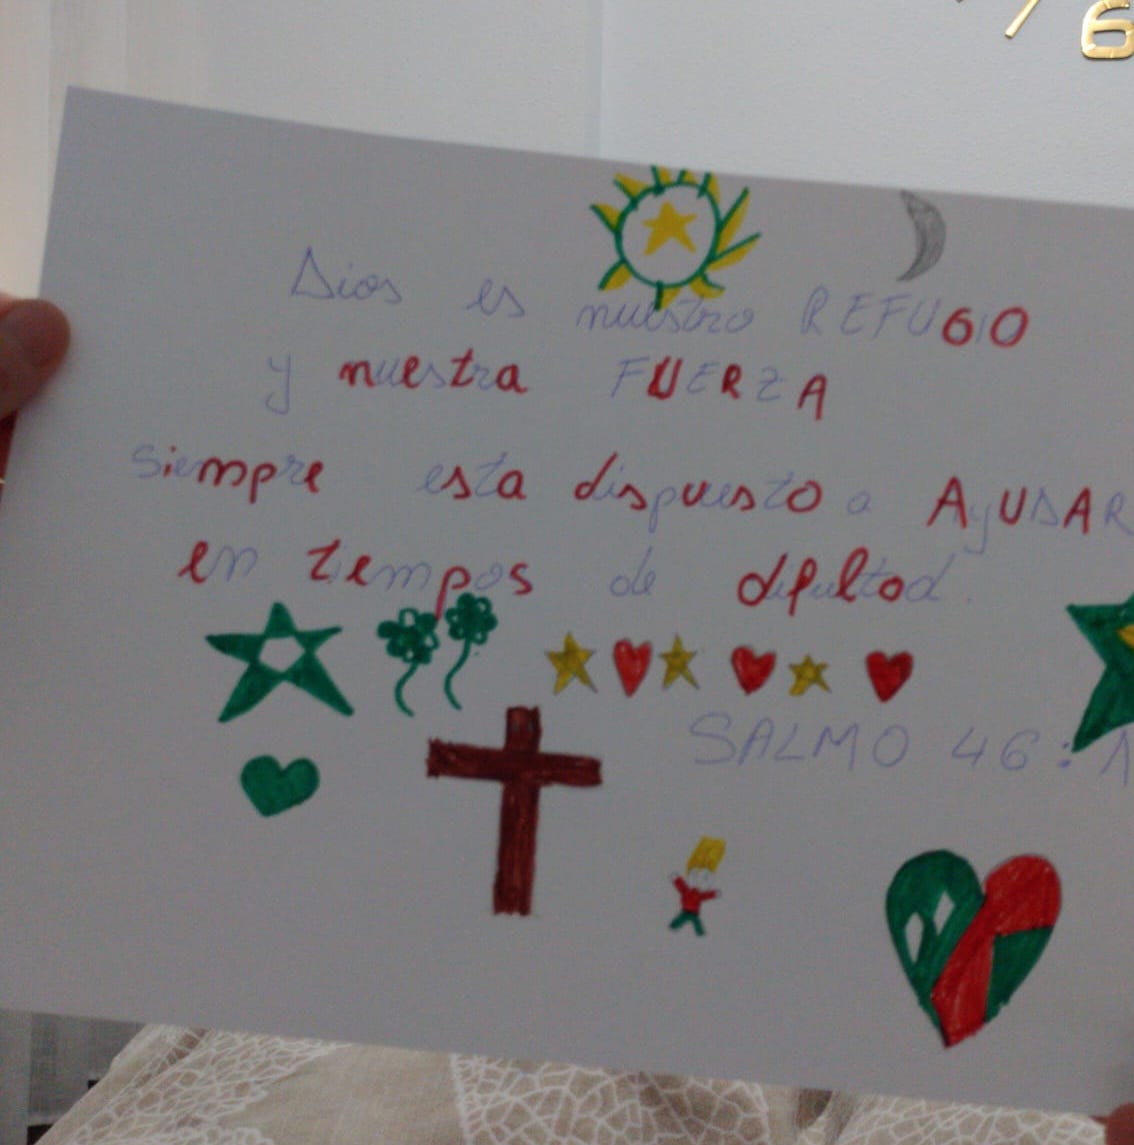 6
Dios es nuestro REFUGIO
y nuestra FUERZA
siempre esta dispuesto a AyUDAR
en tiempos de
SALMO 46:1